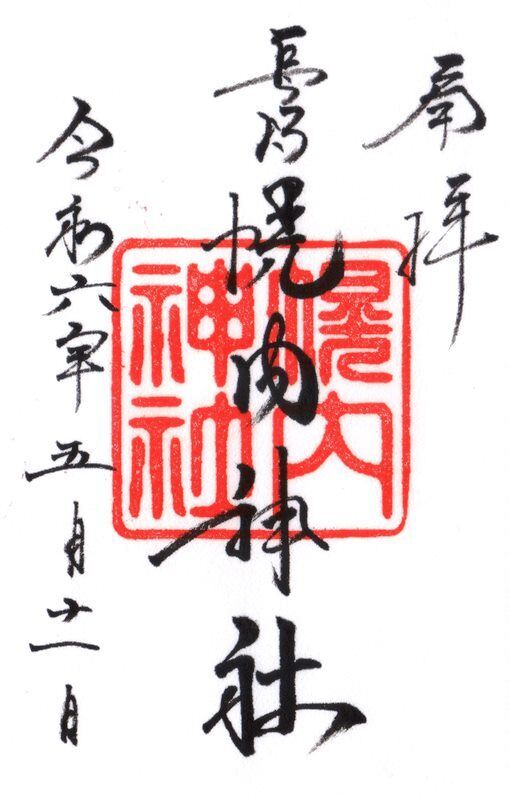 奉拝
長沼
幌内神社
幌内
神社
令和六年五月十一日